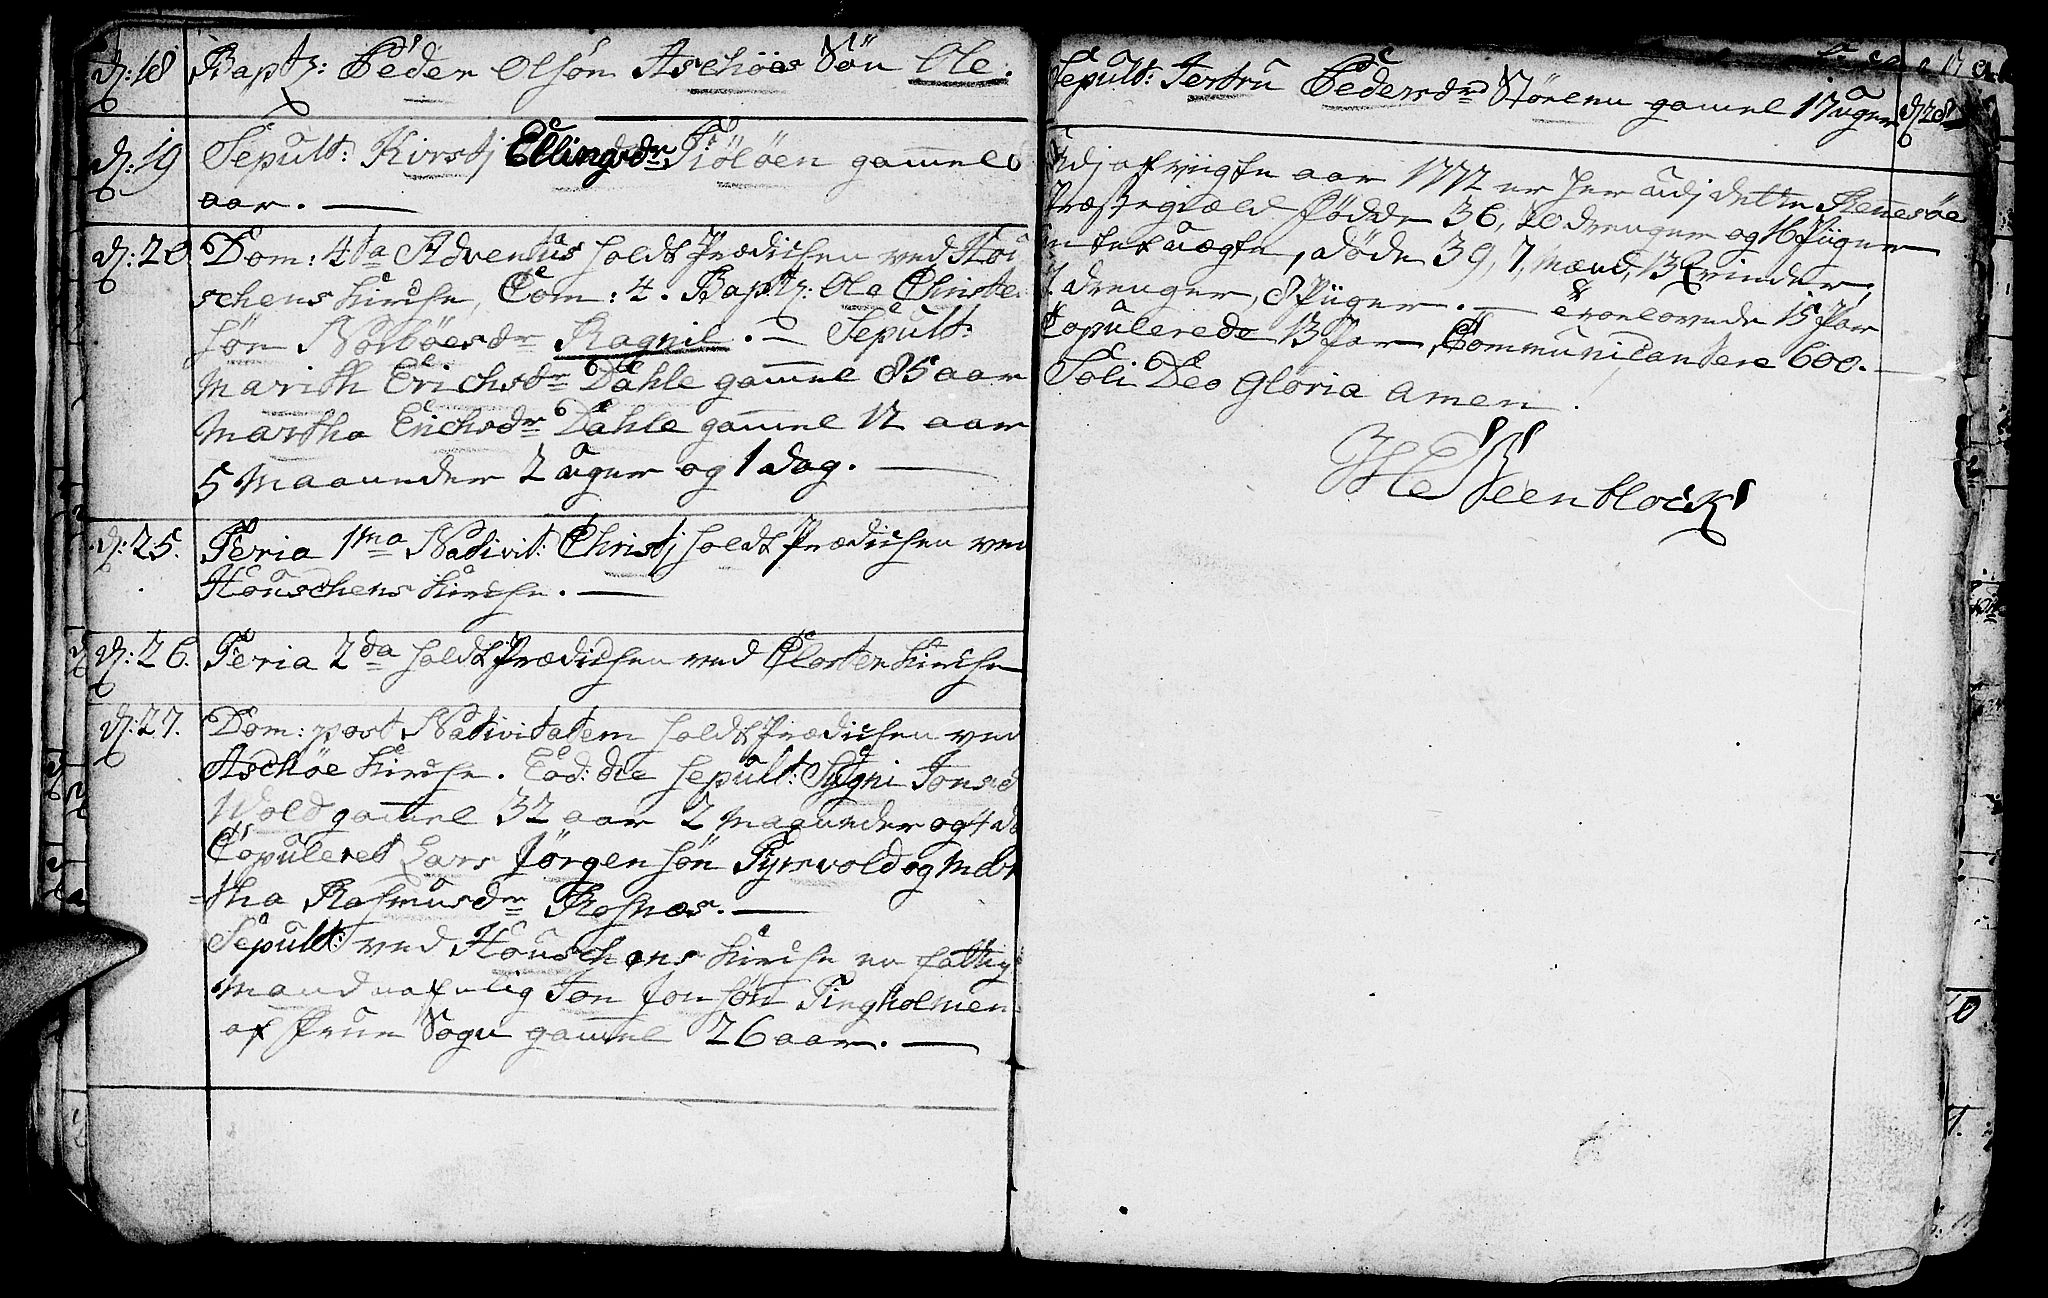 d: 18 Baptz: Peder Olsøn Aschøes Søn Ole.
d: 19 Sepult: Kirstj Ellingsdr: Fiøløen gamel 6
aar. —
d: 20 Dom: 4ta Adventus holdt Prædichen ved Hou
schens Kirche, Com: 4. Baptz: Ole Christe
søn Norbøesdr Ragnil. — Sepult:
Marith Erichsdr Dahle gamel 85 aar
Martha Erichsdr Dahle gamel 12 aar
5 Maaneder 2 uger og 1 dag. —
d: 25. Feria 1ma Nativit: Christj holdt Prædichen ved
Houschens Kirche. —
d: 26. Feria 2da holdt Prædichen ved Closter Kirche
d: 27. Dom: post Nativitatem holdt Prædichen ved
Aschøe Kirche. Eod: die sepult: Sygni Jonsd
Wold gamel 32 aar 2 Maaneder og 4 da
Copuleret Lars Jørgensøn Fyrvold og Mar
=tha Rasmusdr Rosnæs. —
Sepult: ved Houschens Kirche en fattig
Mand nafnlig Jon Jonsøn Tingholmen
af Sogn gamel 26 aar. —
Sepult: Jertru Pedersdr Størenu gamel 17 uger d 28
Udj afvigte aar 1772 er her udj dette Rennesøe
Præstegield fødde 36, 20 drenger og 16 Piiger
intet uægte, døde 39, 7, mænd, 13 Qvinder,
drenger, 8 Piiger. — Troelovede 15 Par
Copulerede 13 Par, Communicantere 600. —
Soli Deo Gloria amen.
Steenblock